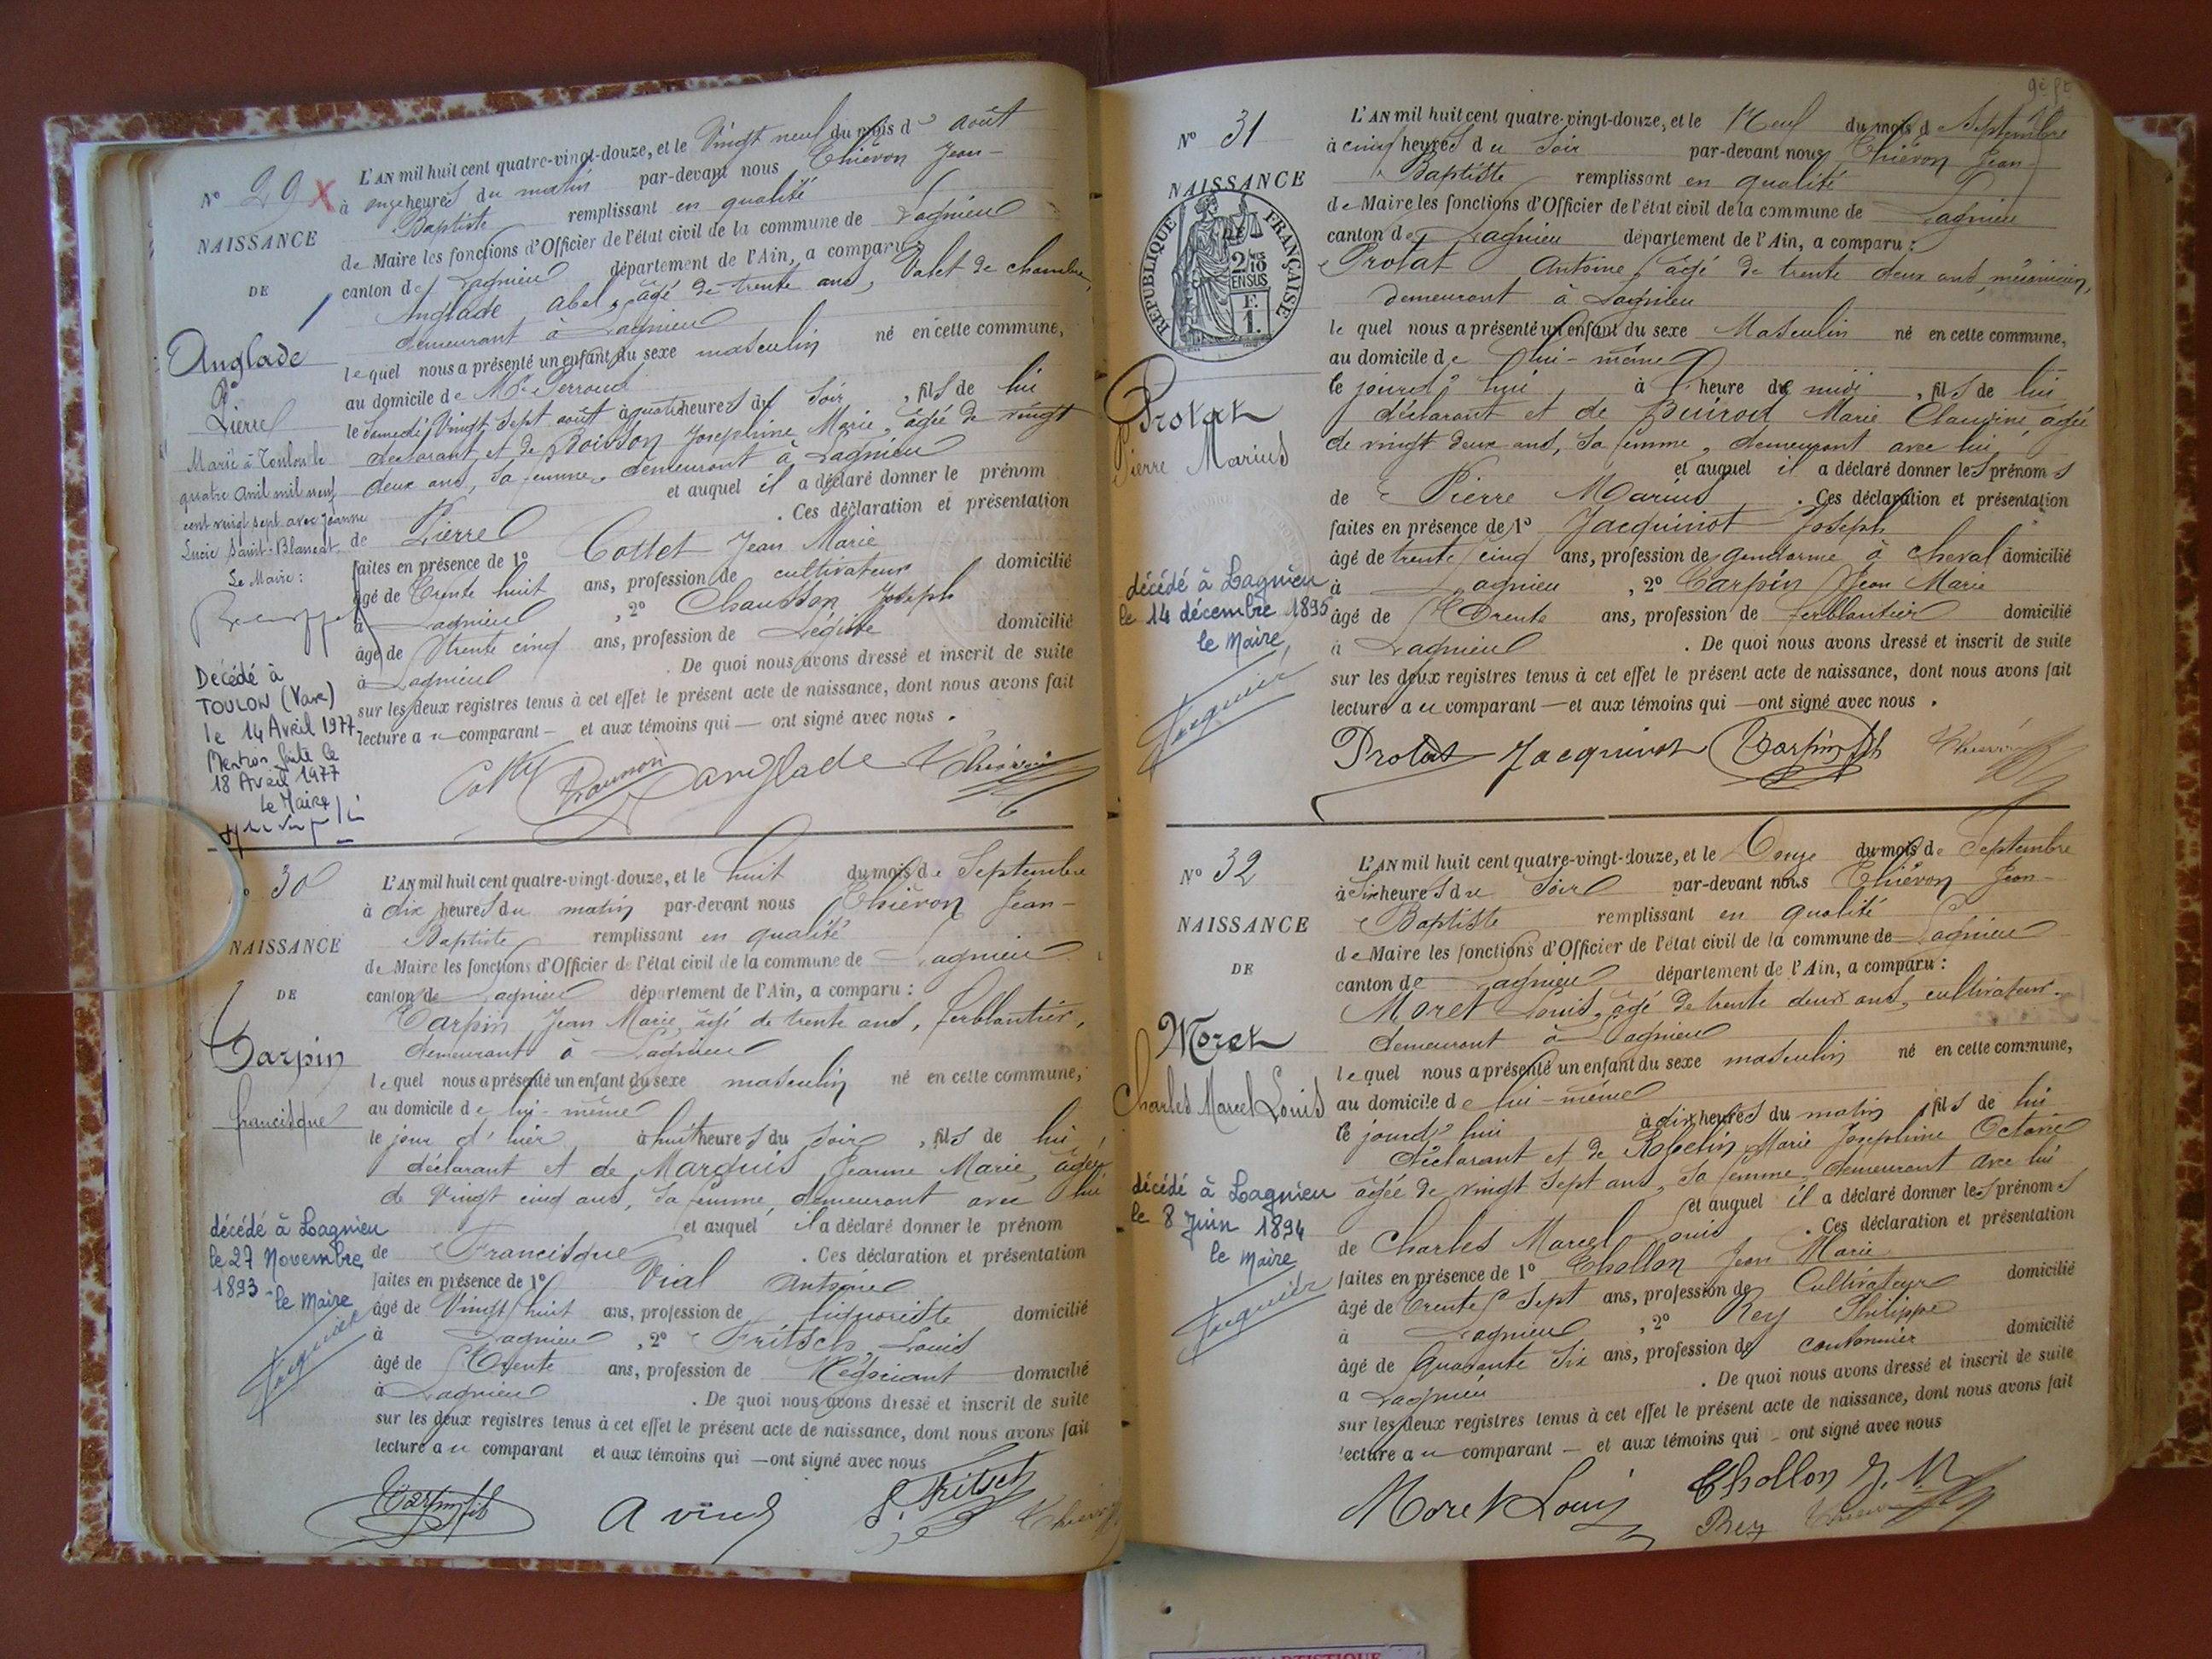 N° 29 X
NAISSANCE
DE
Anglade
Pierre
Marié à Toulon le
quatre avril mil neuf
cent vingt sept avec Jeanne
Lucie Saint-Blancat
Le Maire :
Décédé à
TOULON (Var)
le 14 Avril 1977
Mention faite le
18 Avril 1977
Le Maire
L'AN mil huit cent quatre-vingt-douze, et le Vingt neuf du mois d' août
à onze heures du matin par-devant nous Thiévon Jean-
Baptiste remplissant en qualité
de Maire les fonctions d'Officier de l'état civil de la commune de Lagnieu
canton de Lagnieu département de l'Ain, a comparu :
Anglade Abel, âgé de trente ans, Valet de chambre,
demeurant à Lagnieu
lequel nous a présenté un enfant du sexe masculin né en cette commune,
au domicile de Mr Perroud
le Samedi Vingt Sept août à quatre heures du Soir, fils de lui
déclarant et de Boisson Josephine Marie, âgée de vingt
deux ans, sa femme, demeurant à Lagnieu
et auquel il a déclaré donner le prénom
de Pierre . Ces déclaration et présentation
faites en présence de 1° Cottet Jean Marie
âgé de Trente huit ans, profession de cultivateur domicilié
à Lagnieu, 2° Chausson Joseph
âgé de trente cinq ans, profession de Légiste domicilié
à Lagnieu . De quoi nous avons dressé et inscrit de suite
sur les deux registres tenus à cet effet le présent acte de naissance, dont nous avons fait
lecture au comparant — et aux témoins qui — ont signé avec nous .
anglade Thiévon
N° 30
NAISSANCE
DE
Carpin
Francisque
décédé à Lagnieu
le 27 Novembre
1893 - le Maire
L'AN mil huit cent quatre-vingt-douze, et le huit du mois de Septembre
à dix heures du matin par-devant nous Thiévon Jean-
Baptiste remplissant en qualité
de Maire les fonctions d'Officier de l'état civil de la commune de Lagnieu
canton de Lagnieu département de l'Ain, a comparu :
Carpin Jean Marie, âgé de trente ans, ferblantier,
demeurant à Lagnieu
lequel nous a présenté un enfant du sexe masculin né en cette commune,
au domicile de lui-même
le jour d'hier à huit heures du soir, fils de lui,
déclarant et de Marquis Jeanne Marie, âgée
de Vingt cinq ans, sa femme, demeurant avec lui
et auquel il a déclaré donner le prénom
de Francisque . Ces déclaration et présentation
faites en présence de 1° Vial Antoine
âgé de Vingt huit ans, profession de liquoriste domicilié
à Lagnieu, 2° Fritsch, Louis
âgé de Trente ans, profession de Négociant domicilié
à Lagnieu . De quoi nous avons dressé et inscrit de suite
sur les deux registres tenus à cet effet le présent acte de naissance, dont nous avons fait
lecture au comparant et aux témoins qui — ont signé avec nous
Carpin fils A vial L. Fritsch Thiévon
N° 31
NAISSANCE
RÉPUBLIQUE FRANÇAISE
2/10 EN SUS
F. 1.
Protat
Pierre Marius
décédé à Lagnieu
le 14 décembre 1895
le Maire,
L'AN mil huit cent quatre-vingt-douze, et le Neuf du mois d Septembre
à cinq heures du soir par-devant nous Thiévon Jean
Baptiste remplissant en qualité
de Maire les fonctions d'Officier de l'état civil de la commune de Lagnieu
canton de Lagnieu département de l'Ain, a comparu :
Protat Antoine, âgé de trente deux ans, mécanicien,
demeurant à Lagnieu
lequel nous a présenté un enfant du sexe Masculin né en cette commune,
au domicile de lui-même
le jourd'hui à heure de midi, fils de lui
déclarant et de Marie Claudine, âgée
de vingt deux ans, sa femme, demeurant avec lui
et auquel il a déclaré donner les prénoms
de Pierre Marius . Ces déclaration et présentation
faites en présence de 1° Jacquinot Joseph
âgé de trente cinq ans, profession de gendarme à cheval domicilié
à Lagnieu, 2° Carpin Jean Marie
âgé de Trente ans, profession de ferblantier domicilié
à Lagnieu . De quoi nous avons dressé et inscrit de suite
sur les deux registres tenus à cet effet le présent acte de naissance, dont nous avons fait
lecture au comparant — et aux témoins qui — ont signé avec nous .
Protat Jacquinot Carpin fils Thiévon
N° 32
NAISSANCE
DE
Moret
Charles Marcel Louis
décédé à Lagnieu
le 8 Juin 1894
le Maire
L'AN mil huit cent quatre-vingt-douze, et le Douze du mois de Septembre
à Six heures du Soir par-devant nous Thiévon Jean-
Baptiste remplissant en qualité
de Maire les fonctions d'Officier de l'état civil de la commune de Lagnieu
canton de Lagnieu département de l'Ain, a comparu :
Moret Louis, âgé de trente deux ans, cultivateur
demeurant à Lagnieu
lequel nous a présenté un enfant du sexe masculin né en cette commune,
au domicile de lui-même
le jourd'hui à dix heures du matin, fils de lui
déclarant et de Robelin Marie Josephine Octavie
âgée de vingt sept ans, sa femme, demeurant avec lui
et auquel il a déclaré donner les prénoms
de Charles Marcel Louis . Ces déclaration et présentation
faites en présence de 1° Chollon Jean Marie
âgé de trente Sept ans, profession de Cultivateur domicilié
à Lagnieu, 2° Rey Philippe
âgé de Quarante Six ans, profession de cantonnier domicilié
à Lagnieu . De quoi nous avons dressé et inscrit de suite
sur les deux registres tenus à cet effet le présent acte de naissance, dont nous avons fait
lecture au comparant — et aux témoins qui - ont signé avec nous
Moret Louis Chollon J. M.
Rey Thiévon